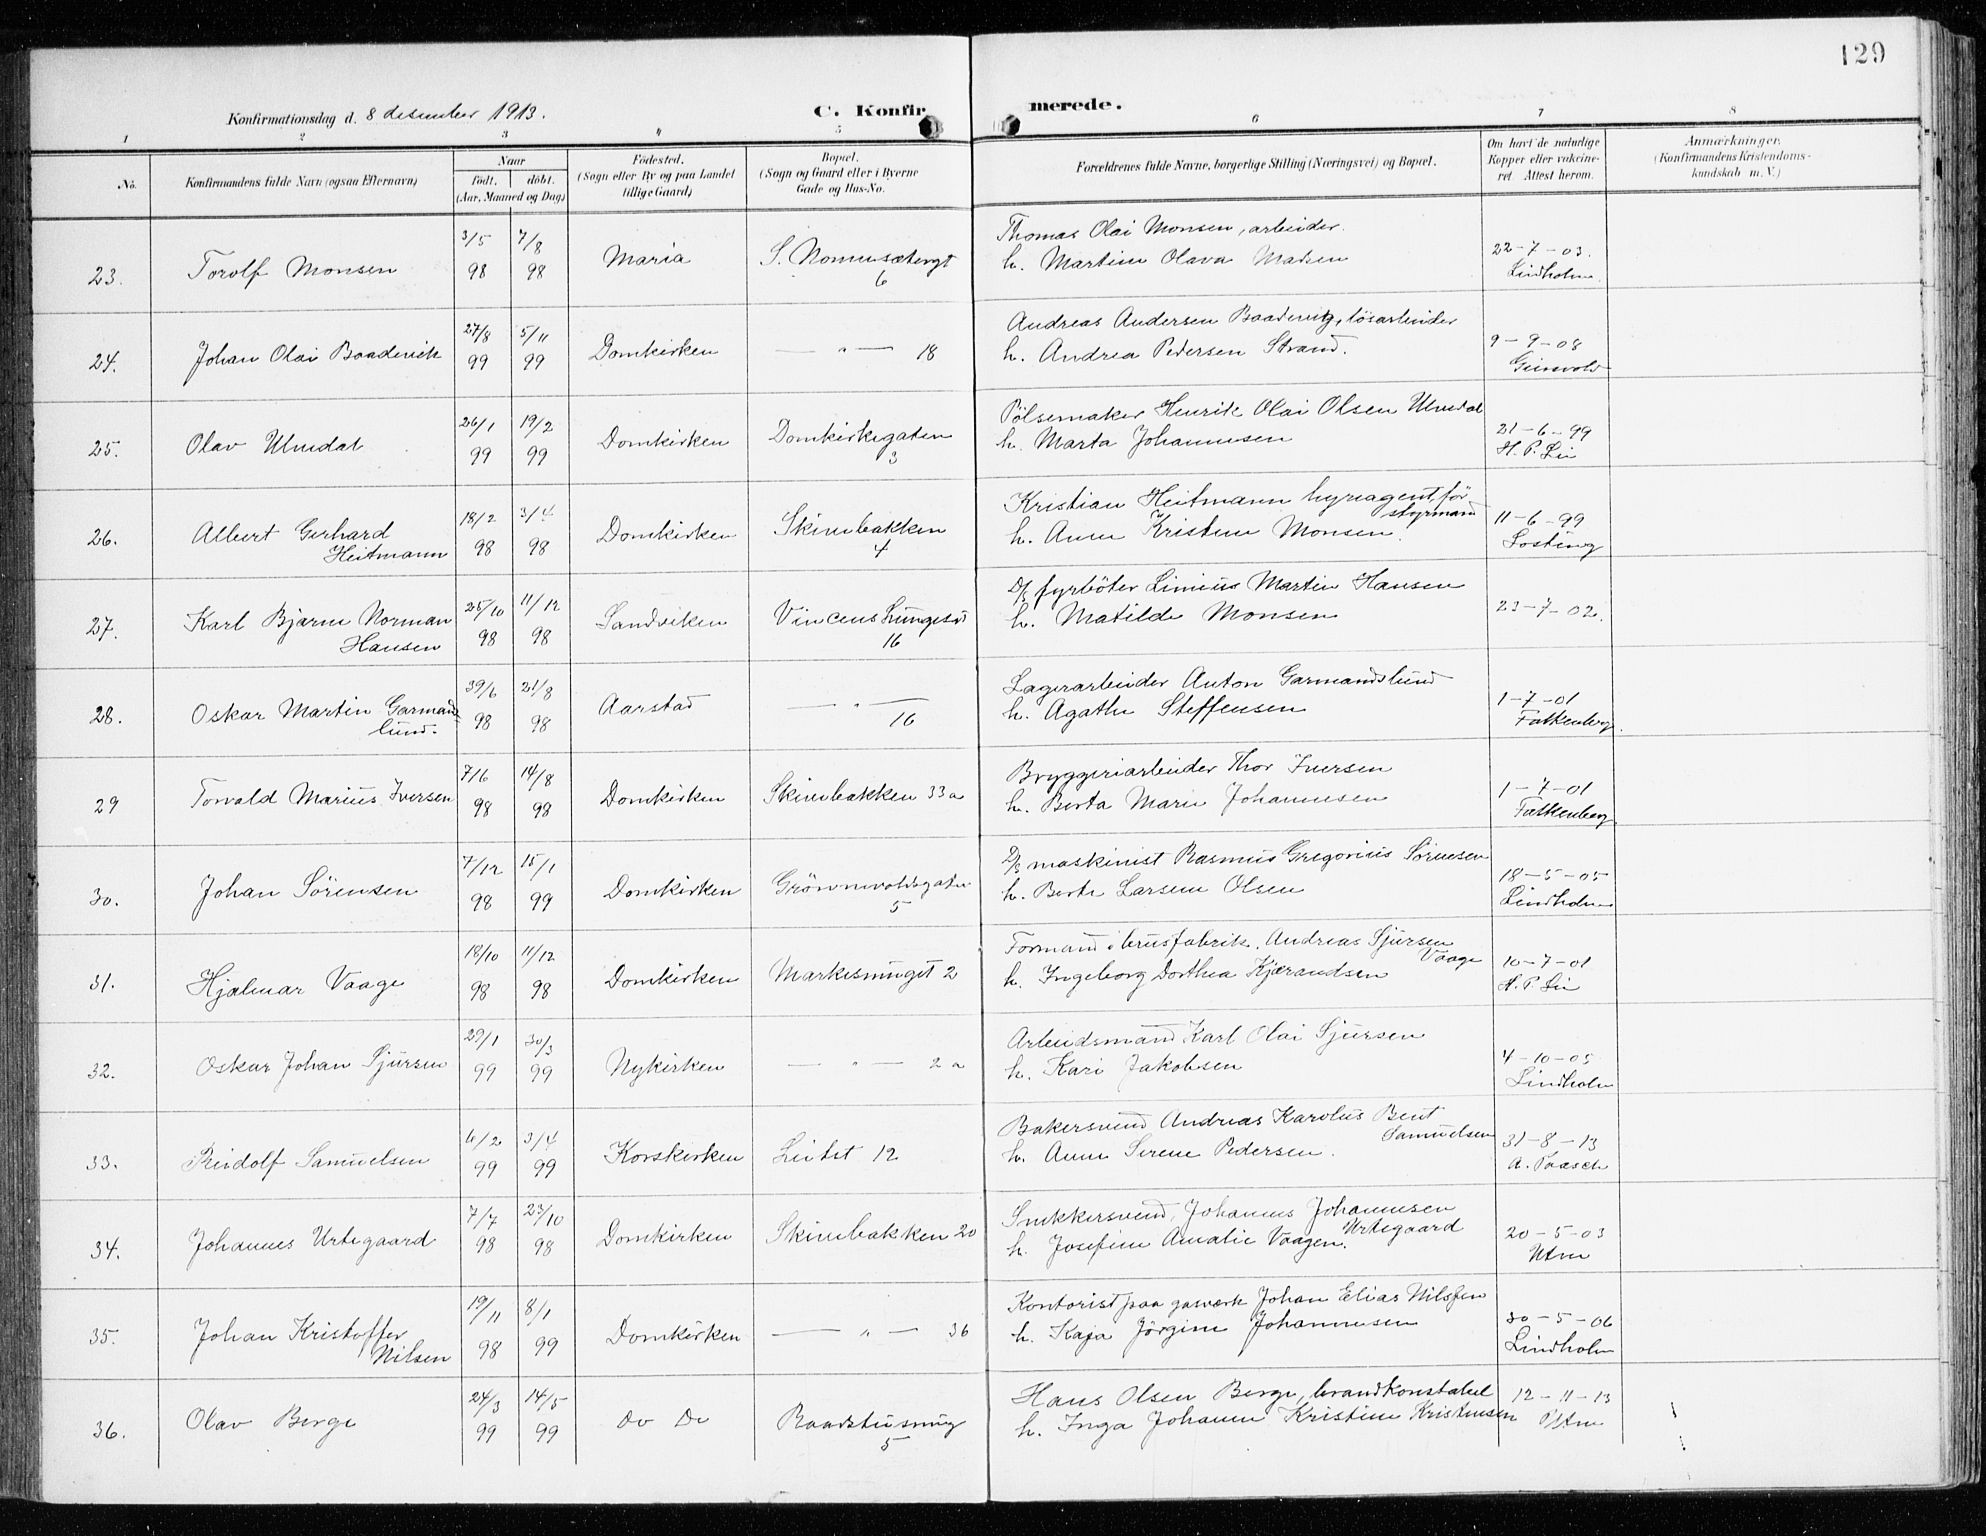 129
Konfirmationsdag d. 8 desember 1913.
C. Konfir
merede.
1 2 3 4 5 6 7 8
No.
Konfirmandens fulde Navn (ogsaa Efternavn)
Naar
Født. døbt.
(Aar, Maaned og Dag)
Fødested.
(Sogn eller By og paa Landet
tillige Gaard)
Bopæl.
(Sogn og Gaard eller i Byerne
Gade og Hus-No.
Forældrenes fulde Navne, borgerlige Stilling (Næringsvei) og Bopæl.
Om havt de naturlige
Kopper eller vakcine-
ret. Attest herom.
Anmærkninger.
(Konfirmandens Kristendoms-
kundskab m. V.)
23. Torolf Monsen 3/5 98 7/8 98 Maria S. 6
Thomas Olai Monsen, arbeider
h. Martine Olava Madsen
22-7-03.
Lindholm
24. Johan Olai Baadevik 27/8 99 5/11 99 Domkirken — " — 18
Andreas Andersen Baadevig, løsarbeider
h. Andrea Pedersen Strand.
9-9-08
25. Olav Ulvedal 26/1 99 19/2 99 Domkirken Domkirkegaten 3
Pølsemaker Henrik Olai Olsen Ulvedal
h. Marta Johannesen
21-6-99
H. P. Lie
26. Albert Gerhard
Heitmann 18/2 98 3/4 98 Domkirken Skivebakken 4
Kristian Heitmann hyreagent, før
styrmand
h. Anne Kristine Monsen.
11-6-99
Losting
27. Karl Bjarne Norman
Hansen 25/10 98 11/12 98 Sandviken Vincens Lungesgt 16
D/s fyrbøter Linius Martin Hansen
h. Matilde Monsen
23-7-02.
28. Oskar Martin Garmands
lund. 39/6 98 21/8 98 Aarstad — " — 16
Lagerarbeider Anton Garmandslund
h. Agathe Steffensen
1-7-01
Falkenberg
29 Torvald Marius Iversen 7/6 98 14/8 98 Domkirken Skivebakken 33a
Bryggeriarbeider Thor Iversen
h. Berta Marie Johannesen
1-7-01
Falkenberg
30. Johan Sørensen 7/12 98 15/1 99 Domkirken Grønnevoldsgaten 5
D/s maskinist Rasmus Gregorius Sørensen
h. Berte Larsene Olsen
18-5-05
Lindholm
31. Hjalmar Vaage 18/10 98 11/12 98 Domkirken Markesmuget 2
Formand i brusfabrik. Andreas Sjursen
Vaage
h. Ingeborg Dorthea Kjærandsen
10-7-01
H. P. Lie
32. Oskar Johan Sjursen 29/1 99 30/3 99 Nykirken — " — 2a
Arbeidsmand Karl Olai Sjursen
h. Kari Jakobsen
4-10-05
Lindholm
33. Reidolf Samuelsen 6/2 99 3/4 99 Korskirken Leitet 12
Bakersvend Andreas Karolus Bent
Samuelsen
h. Anne Serene Pedersen.
31-8-13
A. Paasch
34. Johannes Urtegaard 7/7 98 23/10 98 Domkirken Skivebakken 20
Snekkersvend, Johannes Johannesen
Urtegaard
h. Josefine Amalie Vaagen.
20-5-03
Utne
35. Johan Kristoffer
Nilsen 19/11 98 8/1 99 Domkirken — " — 36
Kontorist paa gasverk Johan Elias Nilssen
h. Kaja Jørgine Johannesen
30-5-06
Lindholm
36. Olav Berge 24/3 99 14/5 99 Do Do Raadstusmug 5
Hans Olsen Berge, brandkonstabel
h. Inga Johanne Kristine Kristensen
12-11-13
Utne